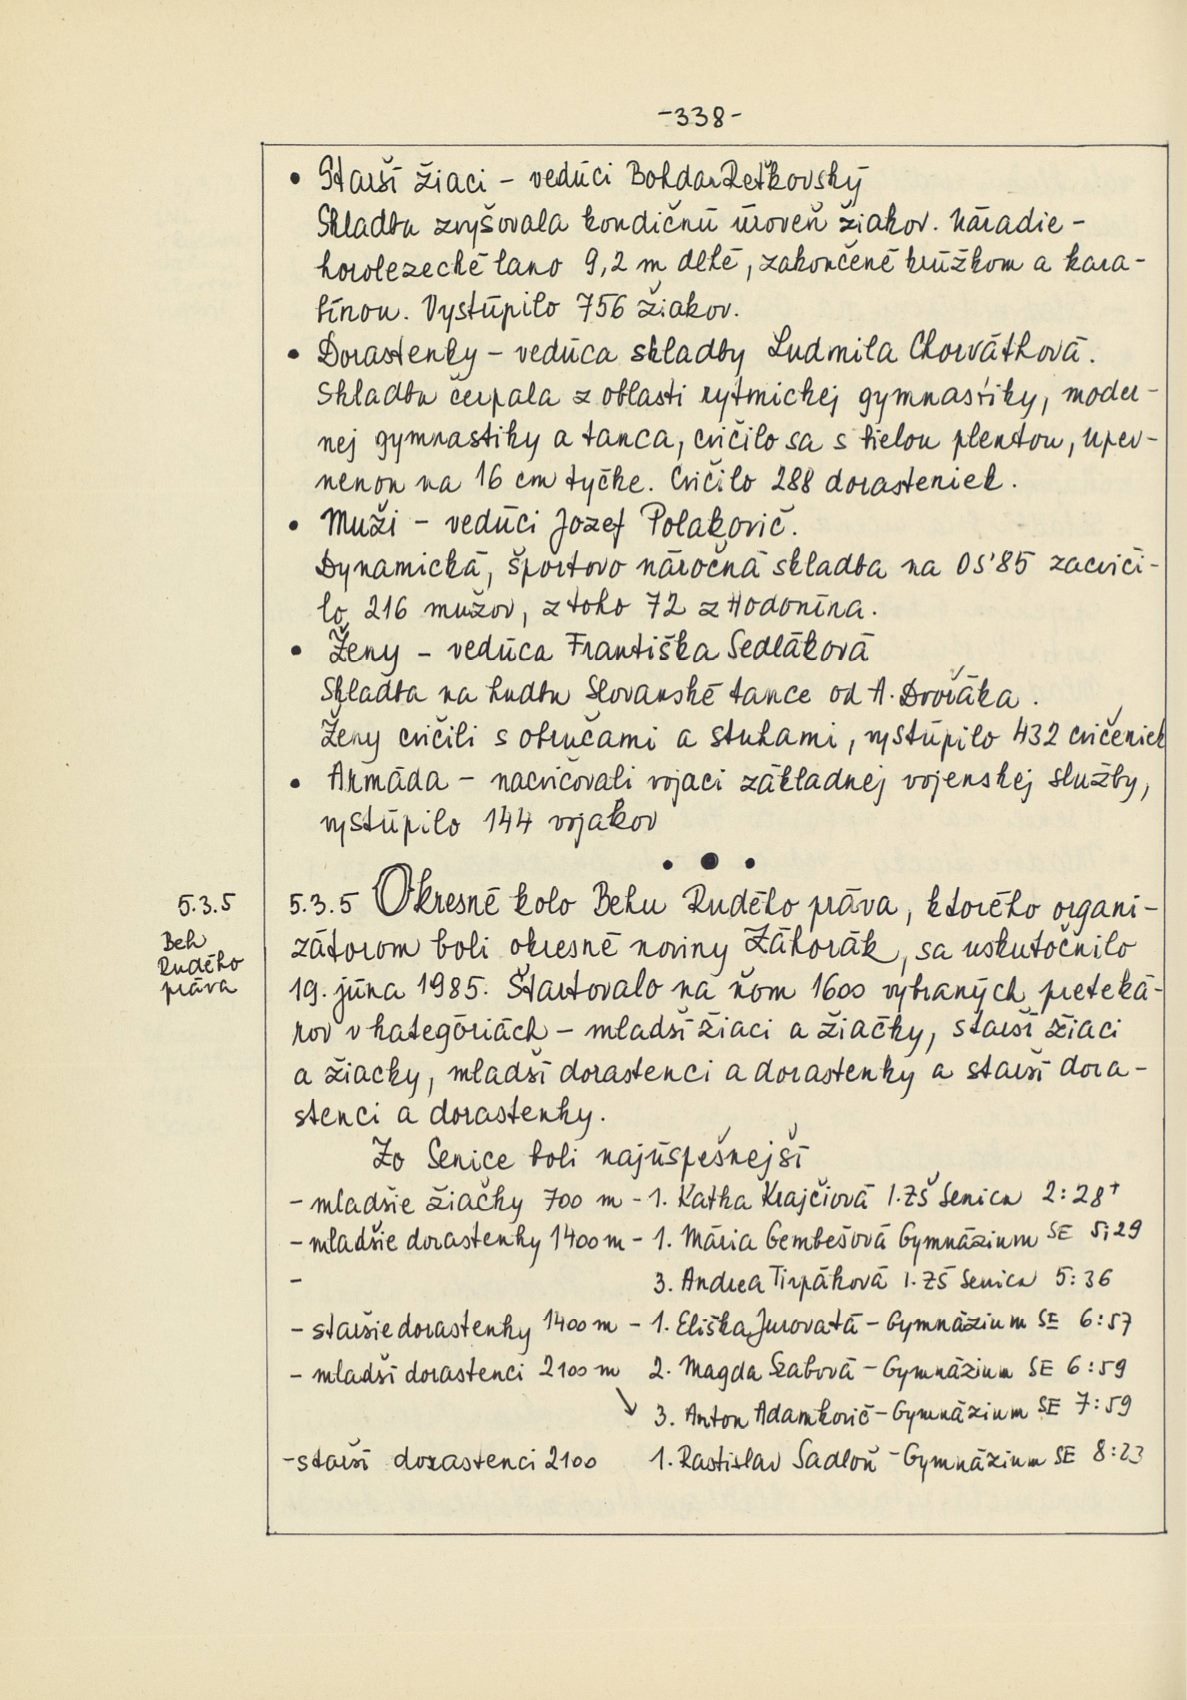 -338-
• Starší žiaci - vedúci Bohdan Reťkovský
Skladba zvyšovala kondičnú úroveň žiakov. Náradie -
horolezecké lano 9,2 m dlhé, zakončené krúžkom a kara-
bínou. Vystúpilo 756 žiakov.
• Dorastenky - vedúca skladby Ľudmila Chorváthová.
Skladba čerpala z oblasti rytmickej gymnastiky, moder-
nej gymnastiky a tanca, cvičilo sa s bielou plentou, upev-
nenou na 16 cm tyčke. Cvičilo 288 dorasteniek.
• Muži - vedúci Jozef Polakovič.
Dynamická, športovo náročná skladba na OS'85 zacviči-
lo 216 mužov, z toho 72 z Hodonína.
• Ženy - vedúca Františka Sedláková
Skladba na hudbu Slovanské tance od A. Dvořáka.
Ženy cvičili s obručami a stuhami, vystúpilo 432 cvičeniek
• Armáda - nacvičovali vojaci základnej vojenskej služby,
vystúpilo 144 vojakov
• ● •
5.3.5
Beh
Rudého
práva
5.3.5 Okresné kolo Behu Rudého práva, ktorého organi-
zátorom boli okresné noviny Záhorák, sa uskutočnilo
19. júna 1985. Štartovalo na ňom 1600 vybraných preteká-
rov v kategóriách - mladší žiaci a žiačky, starší žiaci
a žiacky, mladší dorastenci a dorastenky a starší dora-
stenci a dorastenky.
Zo Senice boli najúspešnejší
- mladšie žiačky 700 m - 1. Katka Krajčiová I. ZŠ Senica 2:28+
- mladšie dorastenky 1400 m - 1. Mária Gembešová Gymnázium SE 5;29
- 3. Andrea Tirpáková I. ZŠ Senica 5:36
- staršie dorastenky 1400 m - 1. Eliška Jurovatá - Gymnázium SE 6:57
- mladší dorastenci 2100 m 2. Magda Szabová - Gymnázium SE 6:59
↘ 3. Anton Adamkovič - Gymnázium SE 7:59
- starší dorastenci 2100 1. Rastislav Sadloň - Gymnázium SE 8:23